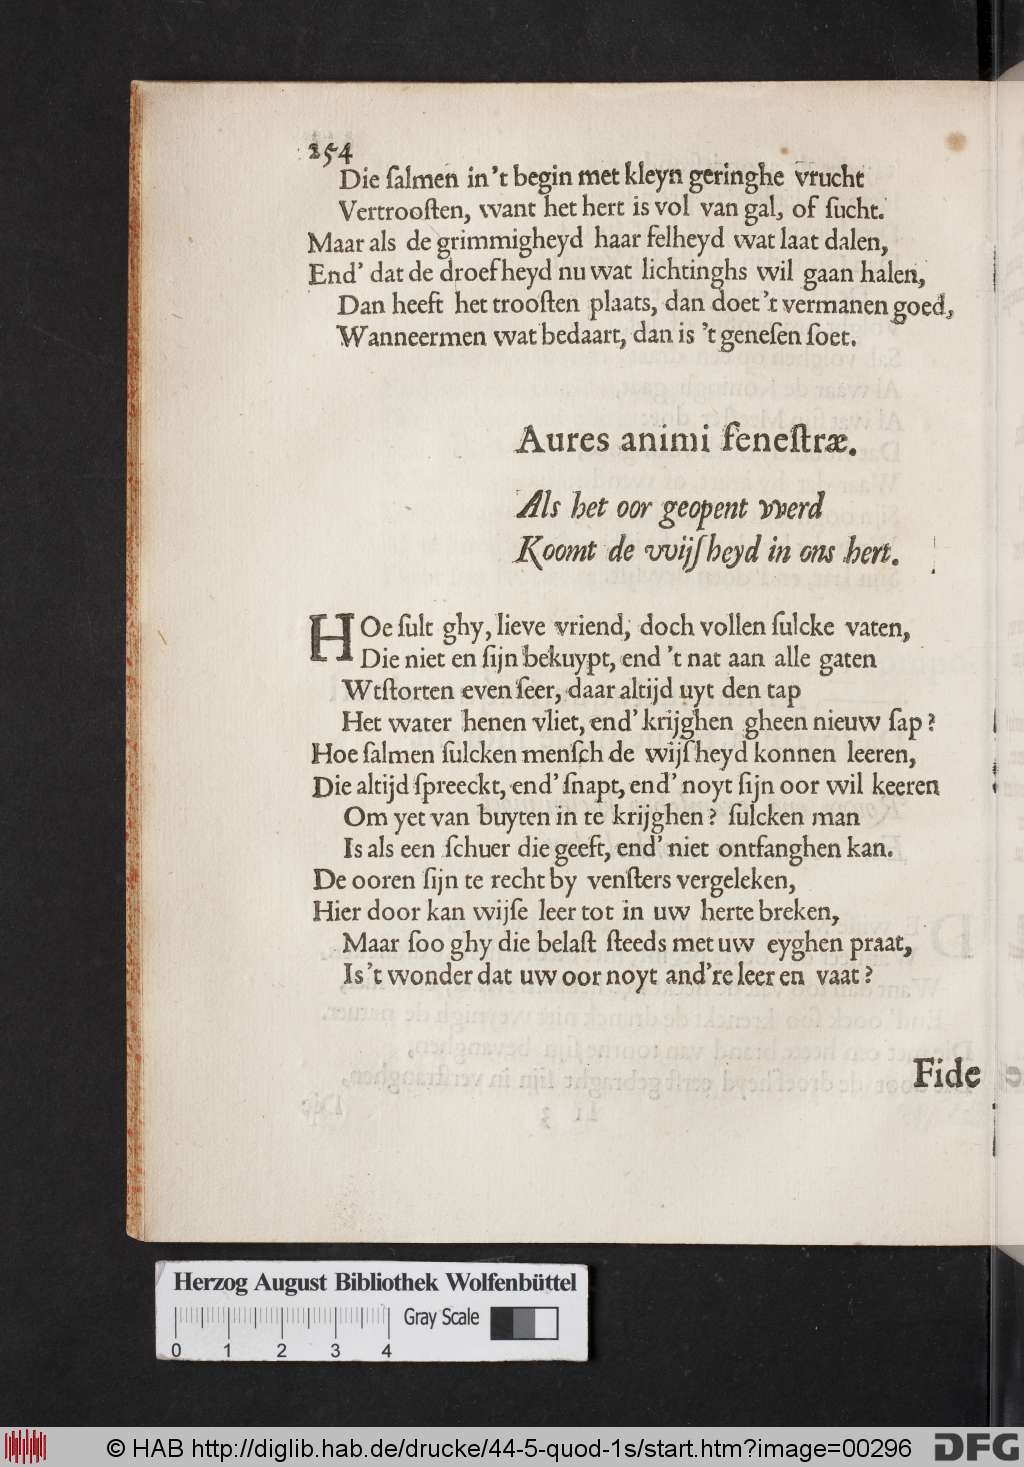 254
Die ſalmen in't begin met kleyn geringhe vrucht
Vertrooſten, want het hert is vol van gal, of ſucht.
Maar als de grimmigheyd haar felheyd wat laat dalen,
End' dat de droefheyd nu wat lichtinghs wil gaan halen,
Dan heeft het trooſten plaats, dan doet 't vermanen goed,
Wanneermen wat bedaart, dan is 't geneſen ſoet.
Aures animi feneſtræ.
Als het oor geopent vverd
Koomt de vvijſheyd in ons hert.
HOe ſult ghy, lieve vriend, doch vollen ſulcke vaten,
Die niet en ſijn bekuypt, end 't nat aan alle gaten
Wtſtorten even ſeer, daar altijd uyt den tap
Het water henen vliet, end' krijghen gheen nieuw ſap?
Hoe ſalmen ſulcken menſch de wijſheyd konnen leeren,
Die altijd ſpreeckt, end' ſnapt, end' noyt ſijn oor wil keeren
Om yet van buyten in te krijghen? ſulcken man
Is als een ſchuer die geeft, end' niet ontfanghen kan.
De ooren ſijn te recht by venſters vergeleken,
Hier door kan wijſe leer tot in uw herte breken,
Maar ſoo ghy die belaſt ſteeds met uw eyghen praat,
Is 't wonder dat uw oor noyt and're leer en vaat?
Fide
Herzog August Bibliothek Wolfenbüttel
Gray Scale
0 1 2 3 4
© HAB http://diglib.hab.de/drucke/44-5-quod-1s/start.htm?image=00296
DFG